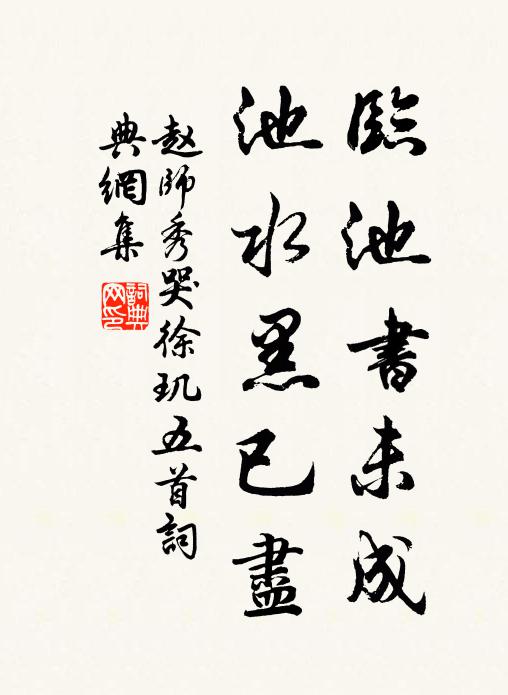 臨池書未成
池水黑已盡
赵師秀哭徐玑五首詞
典網集
詞典網印